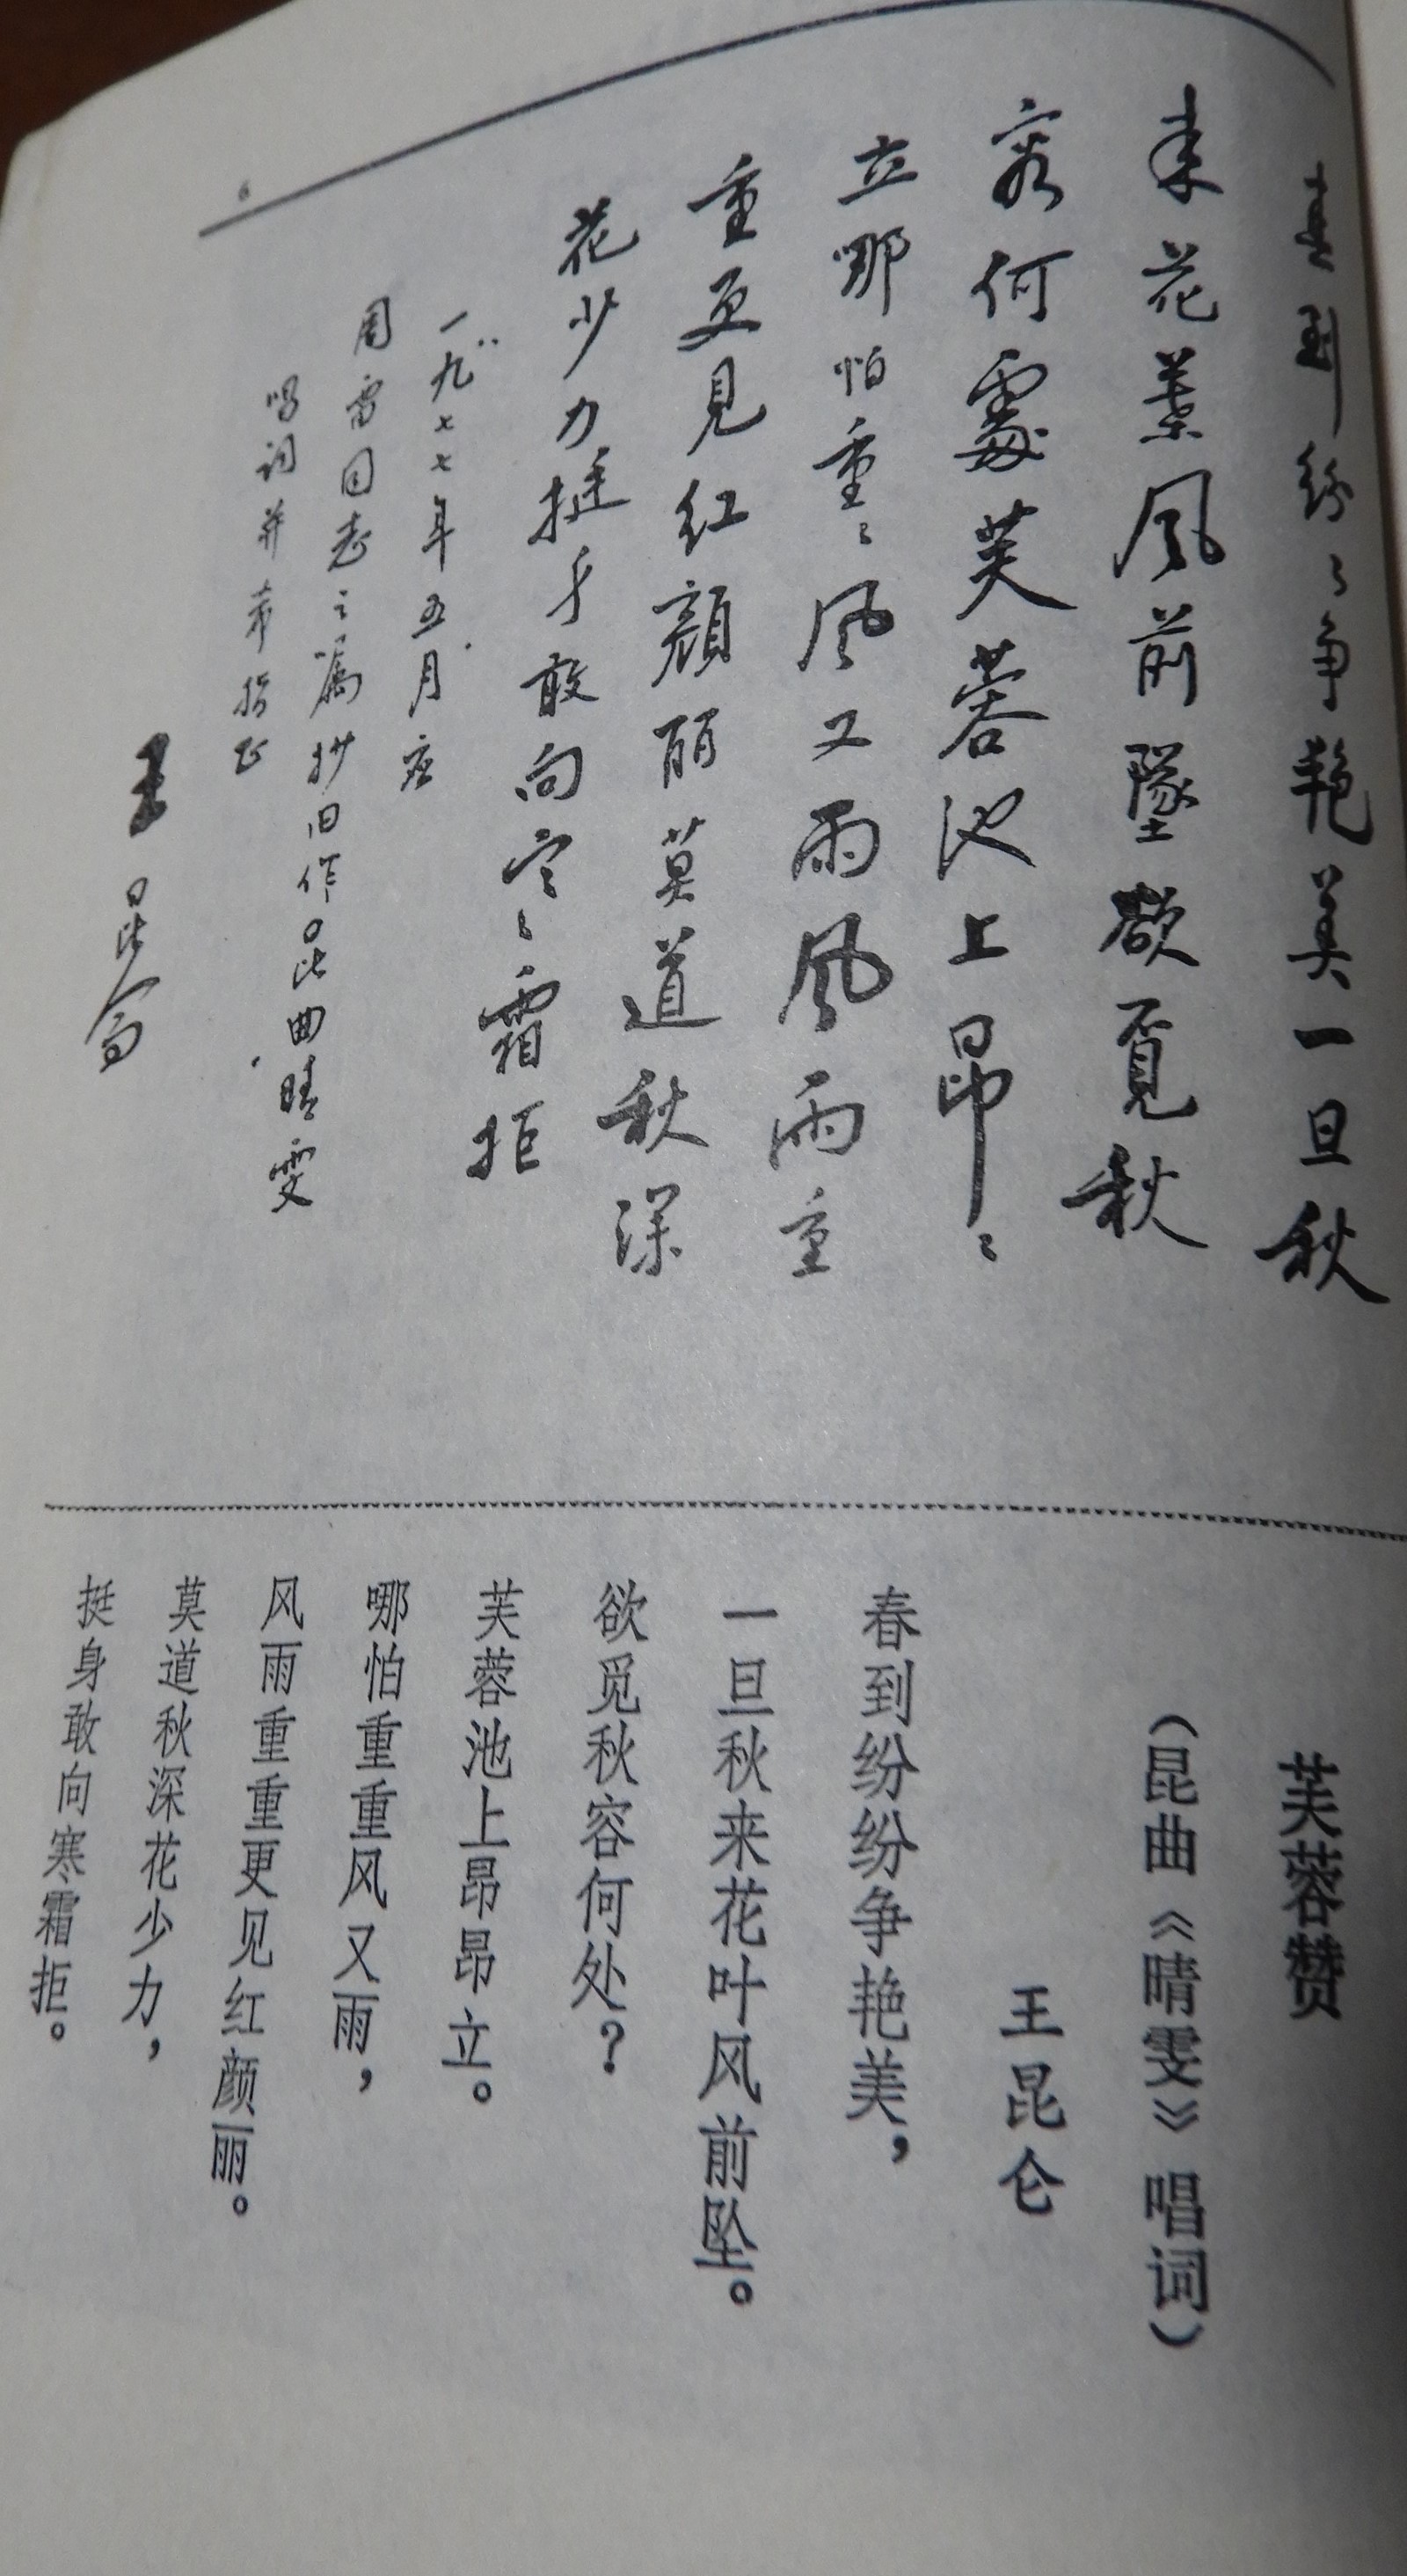 春到纷〻争艳美一旦秋
来花葉風前墜欲覓秋
容何處芙蓉池上昂〻
立哪怕重〻風又雨風雨重
重更見红顏丽莫道秋深
花少力挺身敢向寒〻霜拒
一九七七年五月应
周雷同志之嘱抄旧作昆曲晴雯
唱词并希指正
王昆仑
6
芙蓉赞
（昆曲《晴雯》唱词）
王昆仑
春到纷纷争艳美，
一旦秋来花叶风前坠。
欲觅秋容何处？
芙蓉池上昂昂立。
哪怕重重风又雨，
风雨重重更见红颜丽。
莫道秋深花少力，
挺身敢向寒霜拒。